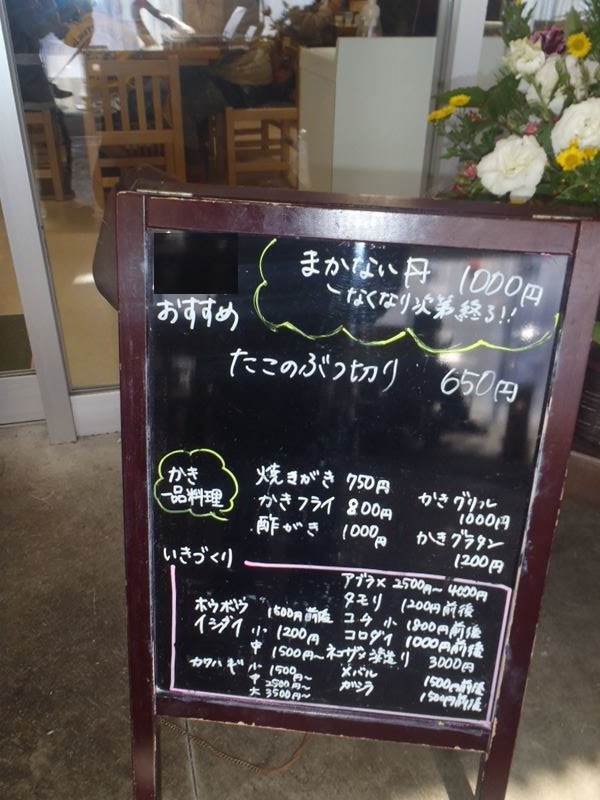 まかない丼 1000円
〜なくなり次第終る!!
おすすめ
たこのぶつ切り 650円
かき
一品料理
焼きがき 750円
かきフライ 800円
酢がき 1000円
かきグリル
1000円
かきグラタン
1200円
いきづくり
ホウボウ 1500円前後
イシダイ 小 1200円
中 1500円〜
カワハギ 小 1500〜
中 2500円〜
大 3500円〜
アブラメ 2500円〜4000円
タモリ 1200円前後
コチ 小 1800円前後
コロダイ 1000円前後
ネコザメ 湯造り 3000円
メバル 1500円前後
ガシラ 1500円前後